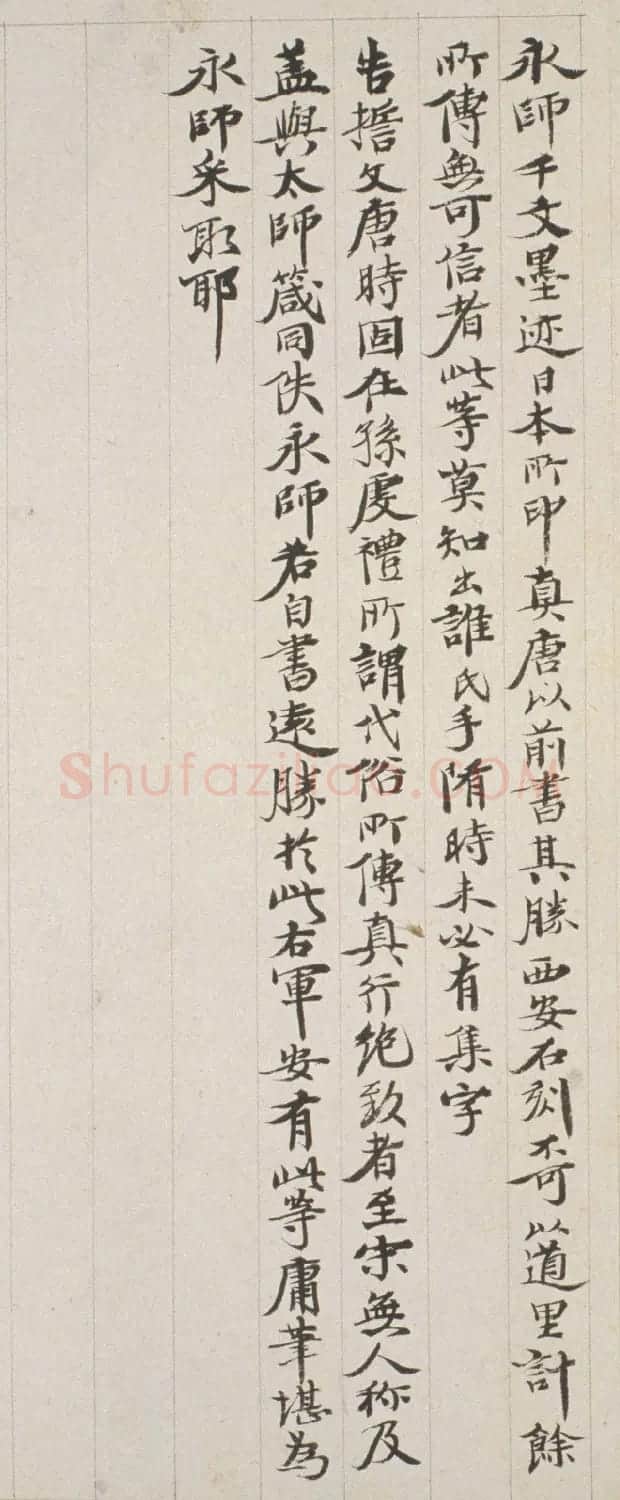 永師千文墨迹日本所印真唐以前書其勝西安石刻不可以道里計餘
所傳無可信者此等莫知出誰氏手隋時未必有集字
告誓文唐時固在孫虔禮所謂代俗所傳真行絕致者至宋無人称及
蓋與太師箴同佚永師若自書遠勝於此右軍安有此等庸筆堪為
永師采取耶
Shufaziliao.COM